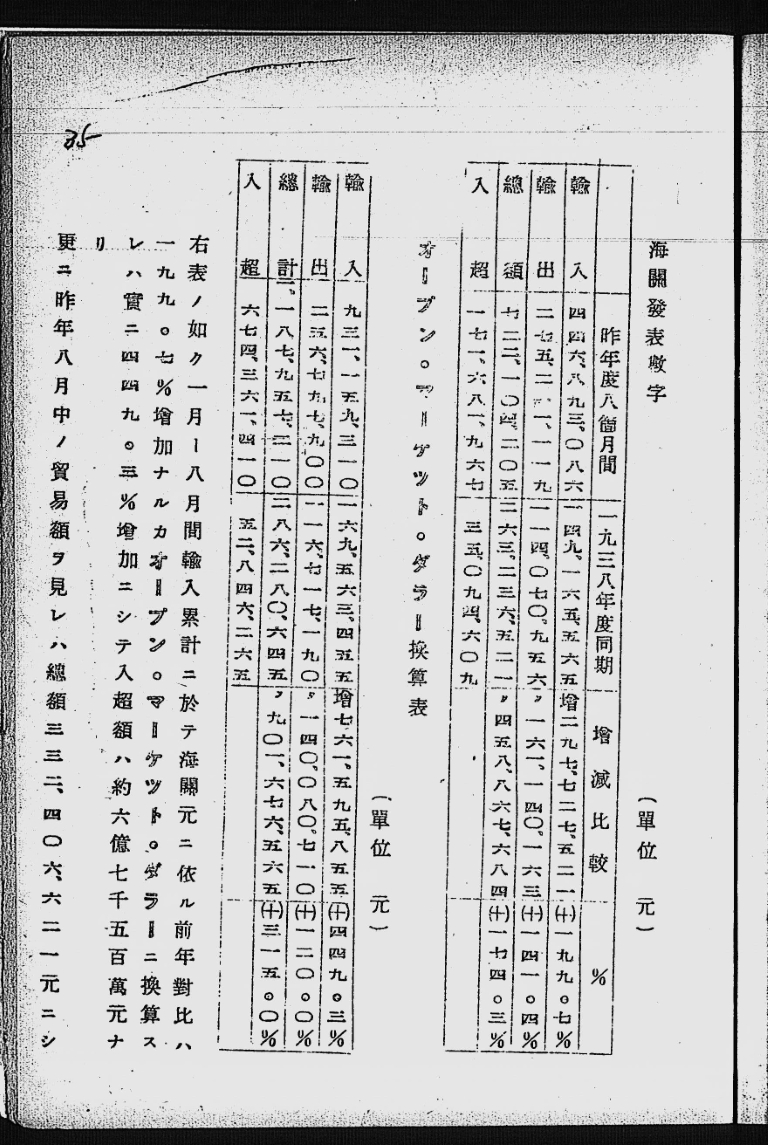 海關發表數字
(單位 元)
昨年度八個月間 一九三八年度同期 增減比較 %
輸入 四四六、八九三、〇八六 一四九、一六五、五六五 增二九七、七二七、五二一 (十)一九九。七%
輸出 二七五、二一一、一一九 一一四、〇七〇、九五六 〃一六一、一四〇、一六三 (十)一四一。四%
總額 七二二、一〇四、二〇五 二六三、二三六、五二一 〃四五八、八六七、六八四 (十)一七四。三%
入超 一七一、六八一、九六七 三五、〇九四、六〇九
オープン。マーケツト。ダラー換算表
(單位 元)
輸入 九三一、一五九、三一〇 一六九、五六三、四五五 增七六一、五九五、八五五 (十)四四九。三%
輸出 二五六、七九七、九〇〇 一一六、七一七、一九〇 〃一四〇、〇八〇、七一〇 (十)一二〇。〇%
總計 一、一八七、九五七、二一〇 二八六、二八〇、六四五 〃九〇一、六七六、五六五 (十)三一五。〇%
入超 六七四、三六一、四一〇 五二、八四六、二六五
右表ノ如ク一月ー八月間輸入累計ニ於テ海關元ニ依ル前年對比ハ
一九九。七%增加ナルカオープン。マーケツト。ダラーニ換算ス
レハ實ニ四四九。三%增加ニシテ入超額ハ約六億七千五百萬元ナ
リ
更ニ昨年八月中ノ貿易額ヲ見レハ總額三三二、四〇六、六二一元ニシ
35